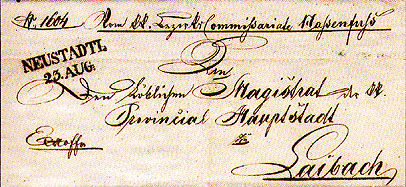 N. 1604 Vom KK. Bezirks Commissariate Nassenfuß
NEUSTADTL
23. AUG:
An
Den Löblichen Magistrat der KK.
Provincial Hauptstadt
zu
Laibach